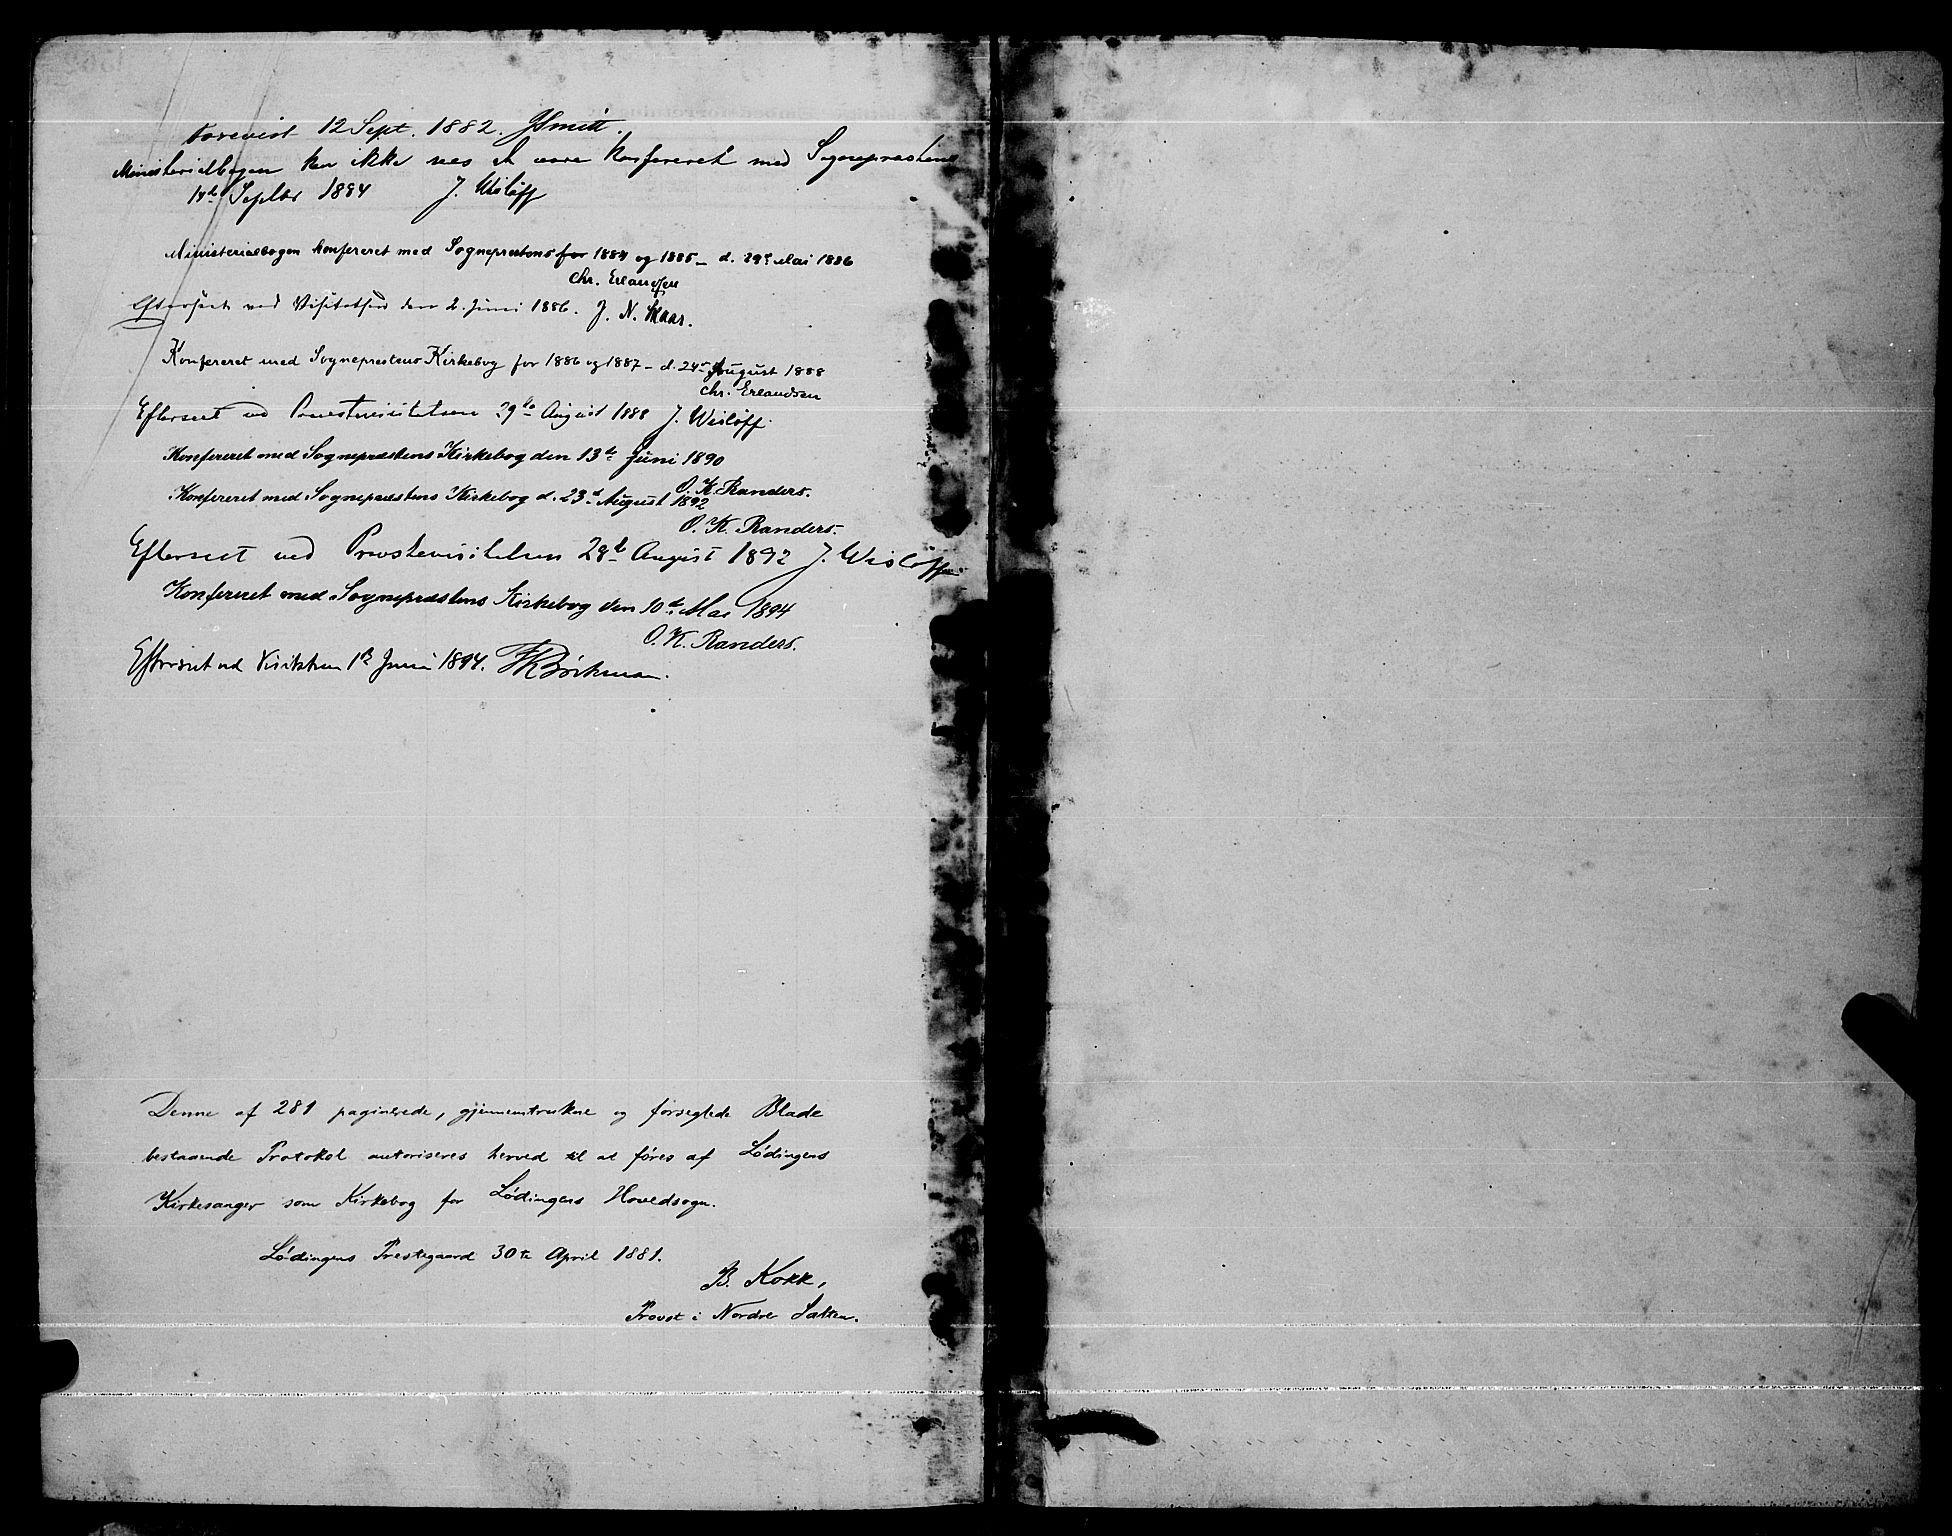 Forevist 12 Sept. 1882. JSmitt.
Ministerialbogen kan ikke sees at være konfereret med Sogneprestens
14de Septbr 1884 J. Wisløff
Ministerialbogen konfereret med Sogneprestens for 1884 og 1885 – d. 29de Mai 1886
Chr. Erlandsen
Efterseet ved Visitatsen den 2. Juni 1886. J. N. Skaar.
Konfereret med Sogneprestens Kirkebog for 1886 og 1887 – d. 24de August 1888
Chr. Erlandsen
Efterseet ved Provstevisitatsen 29de August 1888 J. Wisløff.
Konfereret med Sogneprestens Kirkebog den 13de Juni 1890
O. K. Randers.
Konfereret med Sogneprestens Kirkebog d. 23de August 1892
O. K. Randers.
Efterseet ved Provstevisitatsen 28de August 1892 J. Wisløff.
Konfereret med Sogneprestens Kirkebog den 10de Mai 1894
O. K. Randers.
Efterseet ved Visitatsen 1ste Juni 1894. Bøckman.
Denne af 281 paginerede, gjennemtrukne og forseglede Blade
bestaaende Protokol autoriseres herved til at føres af Lødingens
Kirkesanger som Kirkebog for Lødingens Hovedsogn.
Lødingens Prestegaard 30te April 1881.
B. Kokk,
Provst i Nordre Salten.